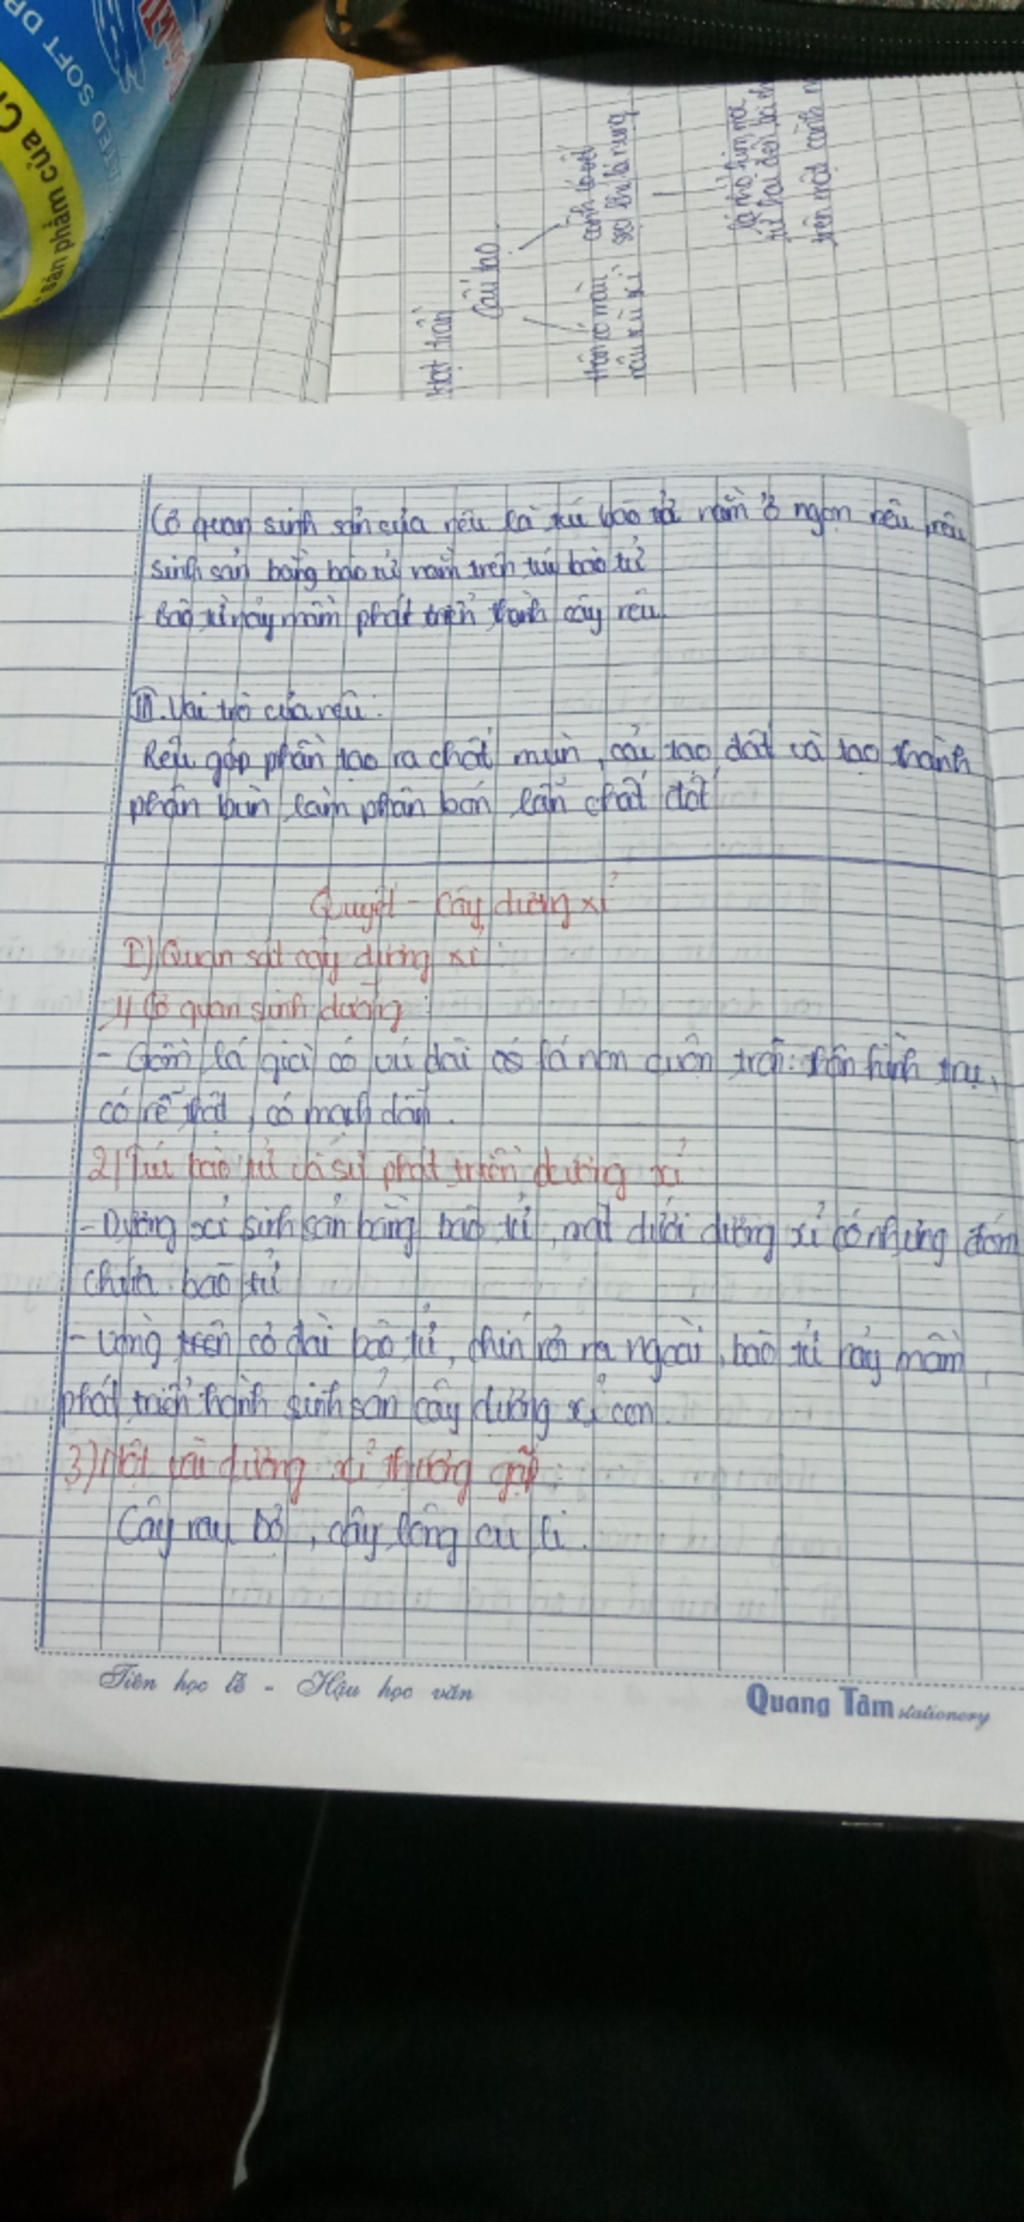 Sản phẩm của C
STED SOFT DR
Hạt trần
Cấu tạo
Thân có màu
nâu xù xì
cành có vết
sẹo khi lá rụng
lá nhỏ hình kim mọc
từ hai đến ba chiếc
trên một cành n
Cơ quan sinh sản của rêu là túi bào tử nằm ở ngọn rêu, rêu
sinh sản bằng bào tử nằm trên túi bào tử
- Bào tử nảy mầm phát triển thành cây rêu.
III. Vai trò của rêu:
Rêu góp phần tạo ra chất mùn, cải tạo đất và tạo thành
phân bùn làm phân bón lẫn chất đốt
Quyết - Cây dương xỉ
I) Quan sát cây dương xỉ
1) Cơ quan sinh dưỡng:
- Gồm lá già có cuống dài có lá non cuộn tròn: thân hình trụ,
có rễ thật, có mạch dẫn.
2) Túi bào tử và sự phát triển dương xỉ
- Dương xỉ sinh sản bằng bào tử, mặt dưới dương xỉ có những đốm
chứa bào tử
- Vòng trên có đai bào tử, chín rơi ra ngoài, bào tử nảy mầm
phát triển thành sinh sản cây dương xỉ con
3) Một vài dương xỉ thường gặp:
Cây rau bợ, cây lông cu li.
Tiên học lễ - Hậu học văn
Quang Tâm stationery